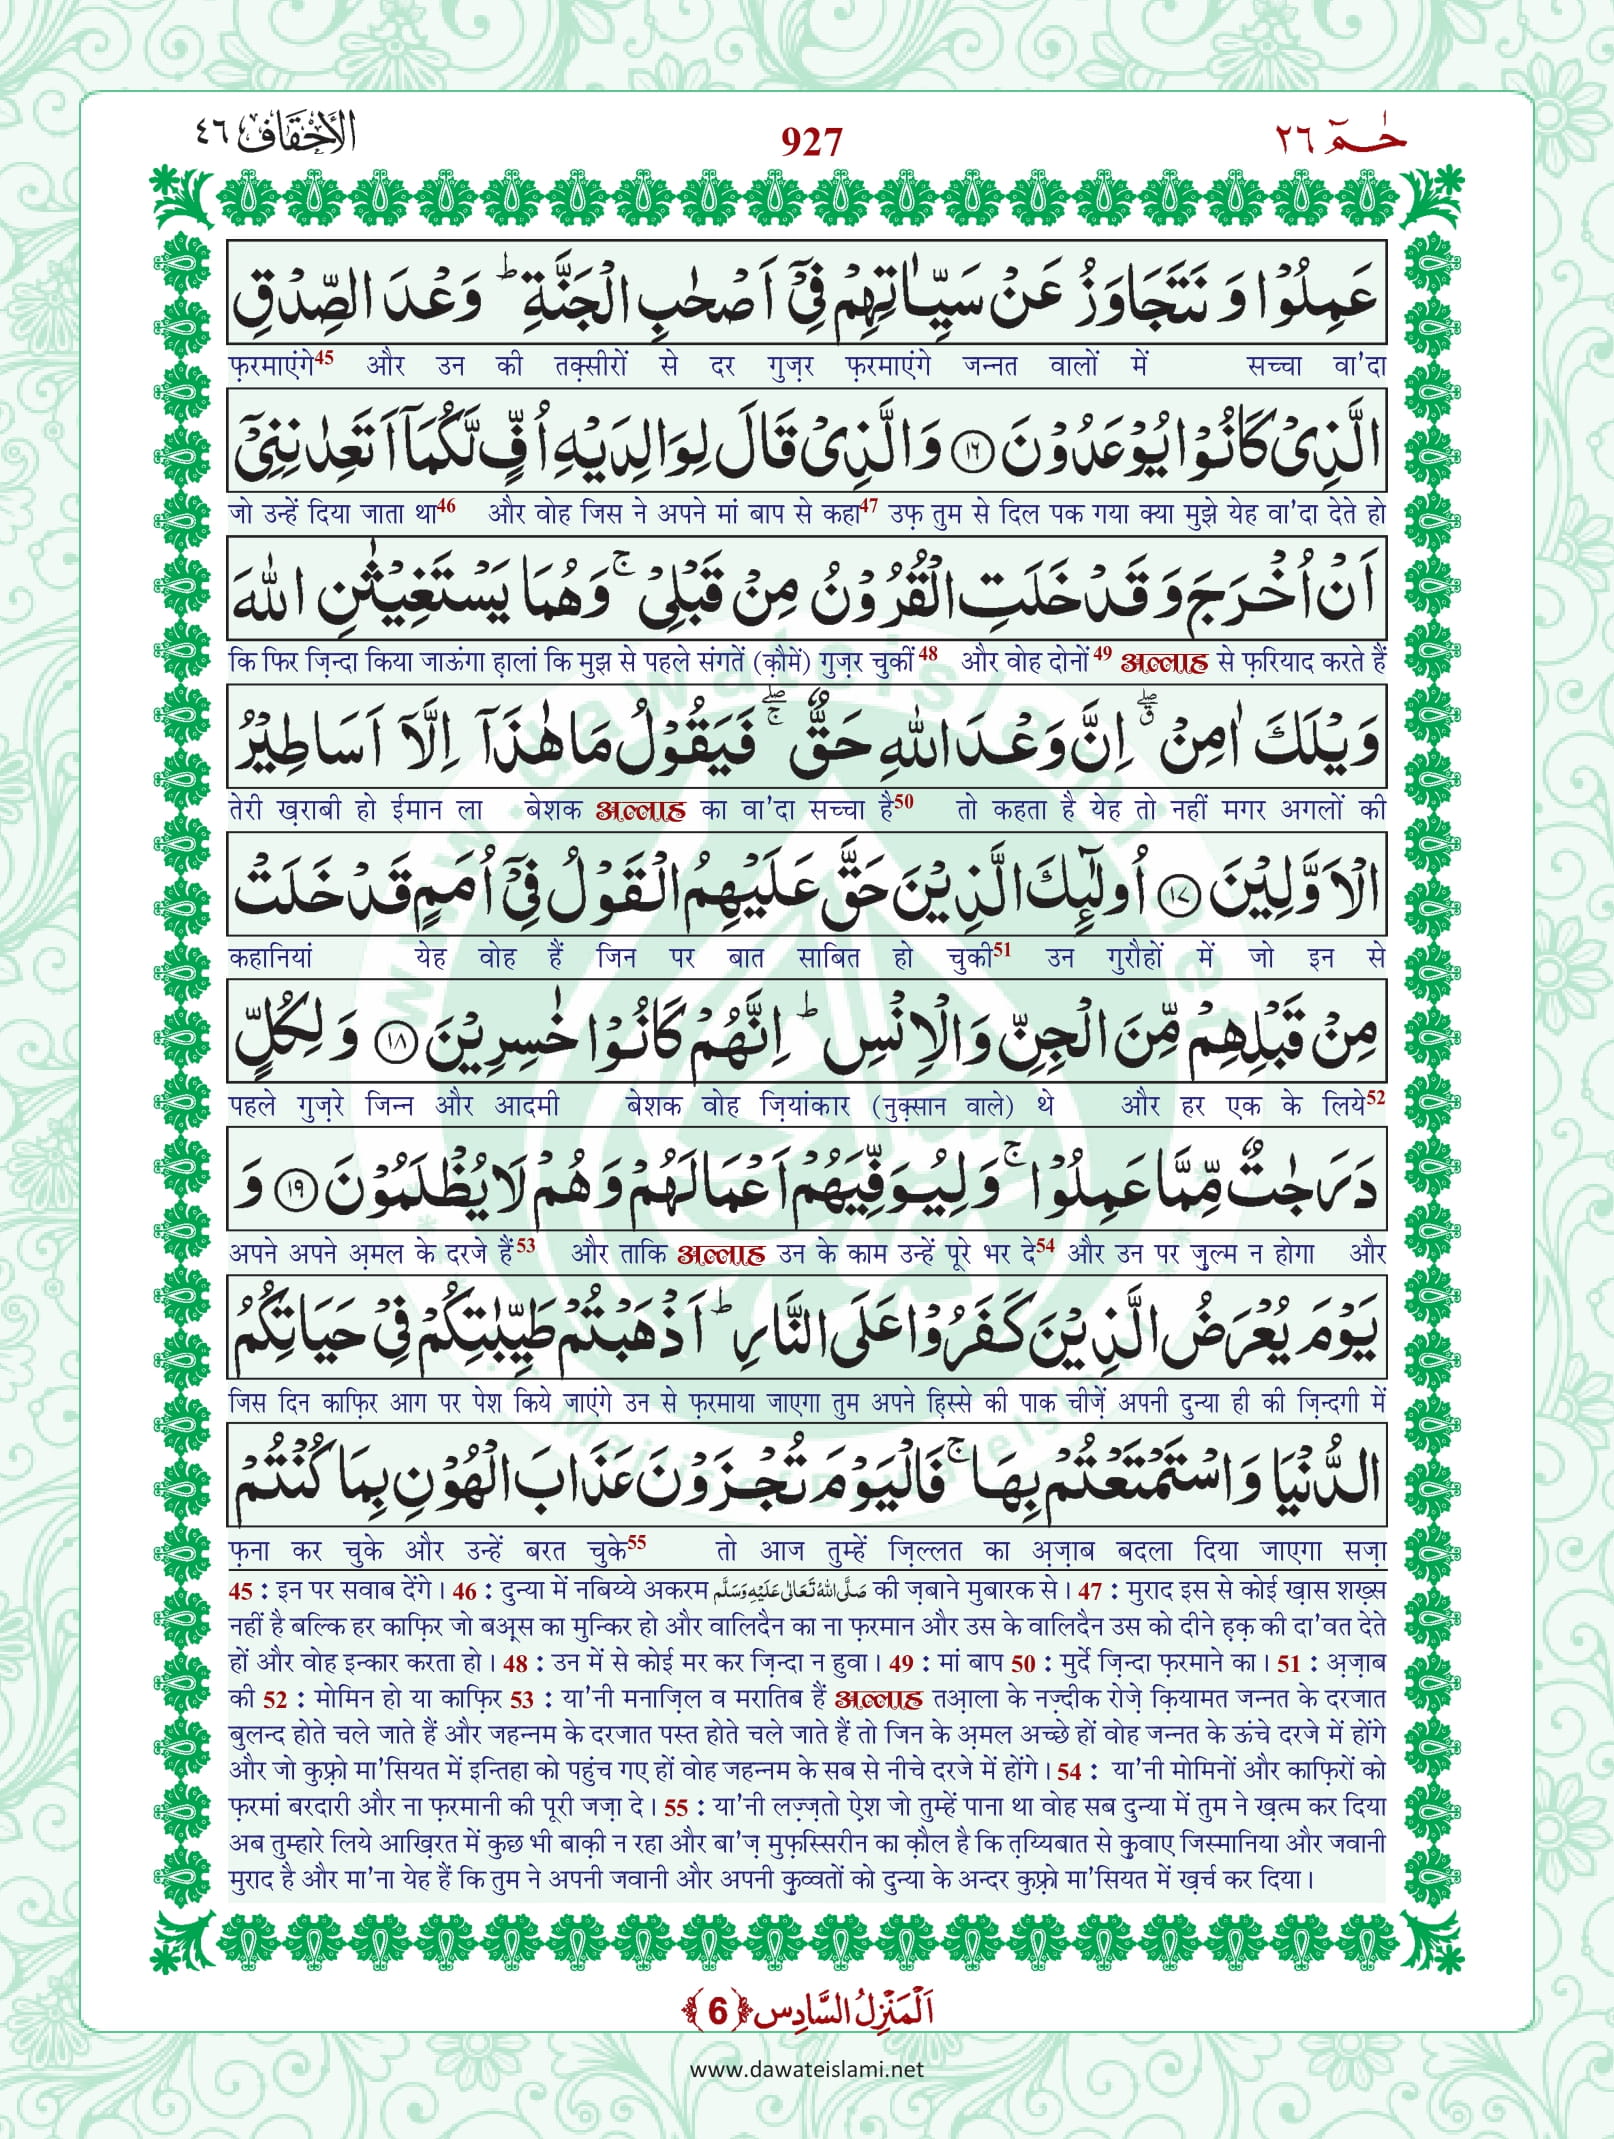 الأحقاف ٤٦
927
حٰمٓ ٢٦
عَمِلُوْا وَ نَتَجَاوَزُ عَنْ سَیِّاٰتِهِمْ فِیْۤ اَصْحٰبِ الْجَنَّةِ ؕ وَعْدَ الصِّدْقِ
फ़रमाएंगे45 और उन की तक़्सीरों से दर गुज़र फ़रमाएंगे जन्नत वालों में सच्चा वा'दा
الَّذِیْ كَانُوْا یُوْعَدُوْنَ ﴿۱۶﴾ وَ الَّذِیْ قَالَ لِوَالِدَیْهِ اُفٍّ لَّكُمَاۤ اَتَعِدٰنِنِیْۤ
जो उन्हें दिया जाता था46 और वोह जिस ने अपने मां बाप से कहा47 उफ़ तुम से दिल पक गया क्या मुझे येह वा'दा देते हो
اَنْ اُخْرَجَ وَ قَدْ خَلَتِ الْقُرُوْنُ مِنْ قَبْلِیْ ۚ وَ هُمَا یَسْتَغِیْثٰنِ اللّٰهَ
कि फिर ज़िन्दा किया जाऊंगा ह़ालां कि मुझ से पहले संगतें (क़ौमें) गुज़र चुकीं48 और वोह दोनों49 अल्लाह से फ़रियाद करते हैं
وَیْلَكَ اٰمِنْ ۖۗ اِنَّ وَعْدَ اللّٰهِ حَقٌّ ۖۚ فَیَقُوْلُ مَا هٰذَاۤ اِلَّاۤ اَسَاطِیْرُ
तेरी ख़राबी हो ईमान ला बेशक अल्लाह का वा'दा सच्चा है50 तो कहता है येह तो नहीं मगर अगलों की
الْاَوَّلِیْنَ ﴿۱۷﴾ اُولٰٓىِٕكَ الَّذِیْنَ حَقَّ عَلَیْهِمُ الْقَوْلُ فِیْۤ اُمَمٍ قَدْ خَلَتْ
कहानियां येह वोह हैं जिन पर बात साबित हो चुकी51 उन गुरौहों में जो इन से
مِنْ قَبْلِهِمْ مِّنَ الْجِنِّ وَ الْاِنْسِ ؕ اِنَّهُمْ كَانُوْا خٰسِرِیْنَ ﴿۱۸﴾ وَ لِكُلٍّ
पहले गुज़रे जिन्न और आदमी बेशक वोह ज़ियांकार (नुक़्सान वाले) थे और हर एक के लिये52
دَرَجٰتٌ مِّمَّا عَمِلُوْا ۚ وَ لِیُوَفِّیَهُمْ اَعْمَالَهُمْ وَ هُمْ لَا یُظْلَمُوْنَ ﴿۱۹﴾ وَ
अपने अपने अ़मल के दरजे हैं53 और ताकि अल्लाह उन के काम उन्हें पूरे भर दे54 और उन पर ज़ुल्म न होगा और
یَوْمَ یُعْرَضُ الَّذِیْنَ كَفَرُوْا عَلَى النَّارِ ؕ اَذْهَبْتُمْ طَیِّبٰتِكُمْ فِیْ حَیَاتِكُمُ
जिस दिन काफ़िर आग पर पेश किये जाएंगे उन से फ़रमाया जाएगा तुम अपने ह़िस्से की पाक चीज़ें अपनी दुन्या ही की ज़िन्दगी में
الدُّنْیَا وَ اسْتَمْتَعْتُمْ بِهَا ۚ فَالْیَوْمَ تُجْزَوْنَ عَذَابَ الْهُوْنِ بِمَا كُنْتُمْ
फ़ना कर चुके और उन्हें बरत चुके55 तो आज तुम्हें ज़िल्लत का अ़ज़ाब बदला दिया जाएगा सज़ा
45 : इन पर सवाब देंगे। 46 : दुन्या में नबिय्ये अकरम صَلَّى اللهُ تَعَالٰى عَلَيْهِ وَسَلَّم की ज़बाने मुबारक से। 47 : मुराद इस से कोई ख़ास शख़्स
नहीं है बल्कि हर काफ़िर जो बअ़्स का मुन्किर हो और वालिदैन का ना फ़रमान और उस के वालिदैन उस को दीने ह़क़ की दा'वत देते
हों और वोह इन्कार करता हो। 48 : उन में से कोई मर कर ज़िन्दा न हुवा। 49 : मां बाप 50 : मुर्दे ज़िन्दा फ़रमाने का। 51 : अ़ज़ाब
की 52 : मोमिन हो या काफ़िर 53 : या'नी मनाज़िल व मरातिब हैं अल्लाह तआ़ला के नज़्दीक रोज़े क़ियामत जन्नत के दरजात
बुलन्द होते चले जाते हैं और जहन्नम के दरजात पस्त होते चले जाते हैं तो जिन के अ़मल अच्छे हों वोह जन्नत के ऊंचे दरजे में होंगे
और जो कुफ़्रो मा'सियत में इन्तिहा को पहुंच गए हों वोह जहन्नम के सब से नीचे दरजे में होंगे। 54 : या'नी मोमिनों और काफ़िरों को
फ़रमां बरदारी और ना फ़रमानी की पूरी जज़ा दे। 55 : या'नी लज़्ज़तो ऐ़श जो तुम्हें पाना था वोह सब दुन्या में तुम ने ख़त्म कर दिया
अब तुम्हारे लिये आख़िरत में कुछ भी बाक़ी न रहा और बा'ज़ मुफ़स्सिरीन का क़ौल है कि त़य्यिबात से क़ुवाए जिस्मानिया और जवानी
मुराद है और मा'ना येह हैं कि तुम ने अपनी जवानी और अपनी क़ुव्वतों को दुन्या के अन्दर कुफ़्रो मा'सियत में ख़र्च कर दिया।
اَلْمَنْزِلُ السَّادِس ﴿6﴾
www.dawateislami.net